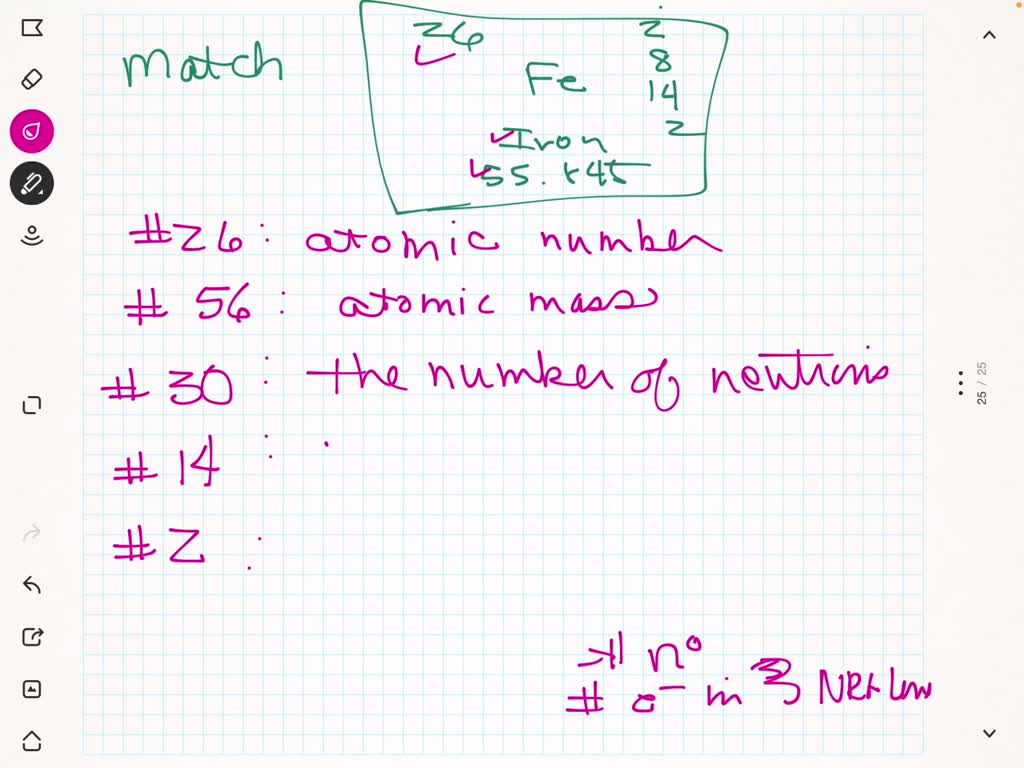 Match
26
2
8
14
2
Fe
Iron
55.845
#26 : atomic number
# 56 : atomic mass
# 30 : the number of neutrons
# 14 :
# 2 :
# n°
# e⁻ in 3
25 / 25